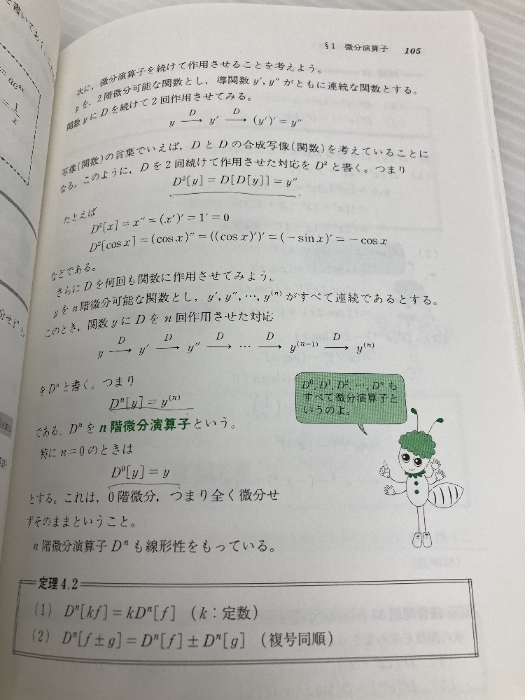 §1 微分演算子 105
次に，微分演算子を続けて作用させることを考えよう。
yを，2階微分可能な関数とし，導関数 y′, y″ がともに連続な関数とする。
関数 y に D を続けて2回作用させてみる。
y —D→ y′ —D→ (y′)′ = y″
写像(関数)の言葉でいえば，DとDの合成写像(関数)を考えていることに
なる。このように，Dを2回続けて作用させた対応を D² と書く。つまり
D²[y] = D[D[y]] = y″
たとえば
D²[x] = x″ = (x′)′ = 1′ = 0
D²[cos x] = (cos x)″ = ((cos x)′)′ = (−sin x)′ = −cos x
などである。
さらに D を何回も関数に作用させてみよう。
y を n 階微分可能な関数とし，y′, y″, …, y⁽ⁿ⁾ がすべて連続であるとする。
このとき，関数 y に D を n 回作用させた対応
y —D→ y′ —D→ y″ —D→ … —D→ y⁽ⁿ⁻¹⁾ —D→ y⁽ⁿ⁾
を Dⁿ と書く。つまり
Dⁿ[y] = y⁽ⁿ⁾
である。Dⁿ を n 階微分演算子という。
特に n=0 のときは
D⁰[y] = y
とする。これは，0階微分，つまり全く微分せ
ずそのままということ。
n 階微分演算子 Dⁿ も線形性をもっている。
D⁰, D¹, D², …, Dⁿ も
すべて微分演算子と
いうのよ。
定理4.2
(1) Dⁿ[kf] = kDⁿ[f] (k：定数)
(2) Dⁿ[f±g] = Dⁿ[f] ± Dⁿ[g] (複号同順)